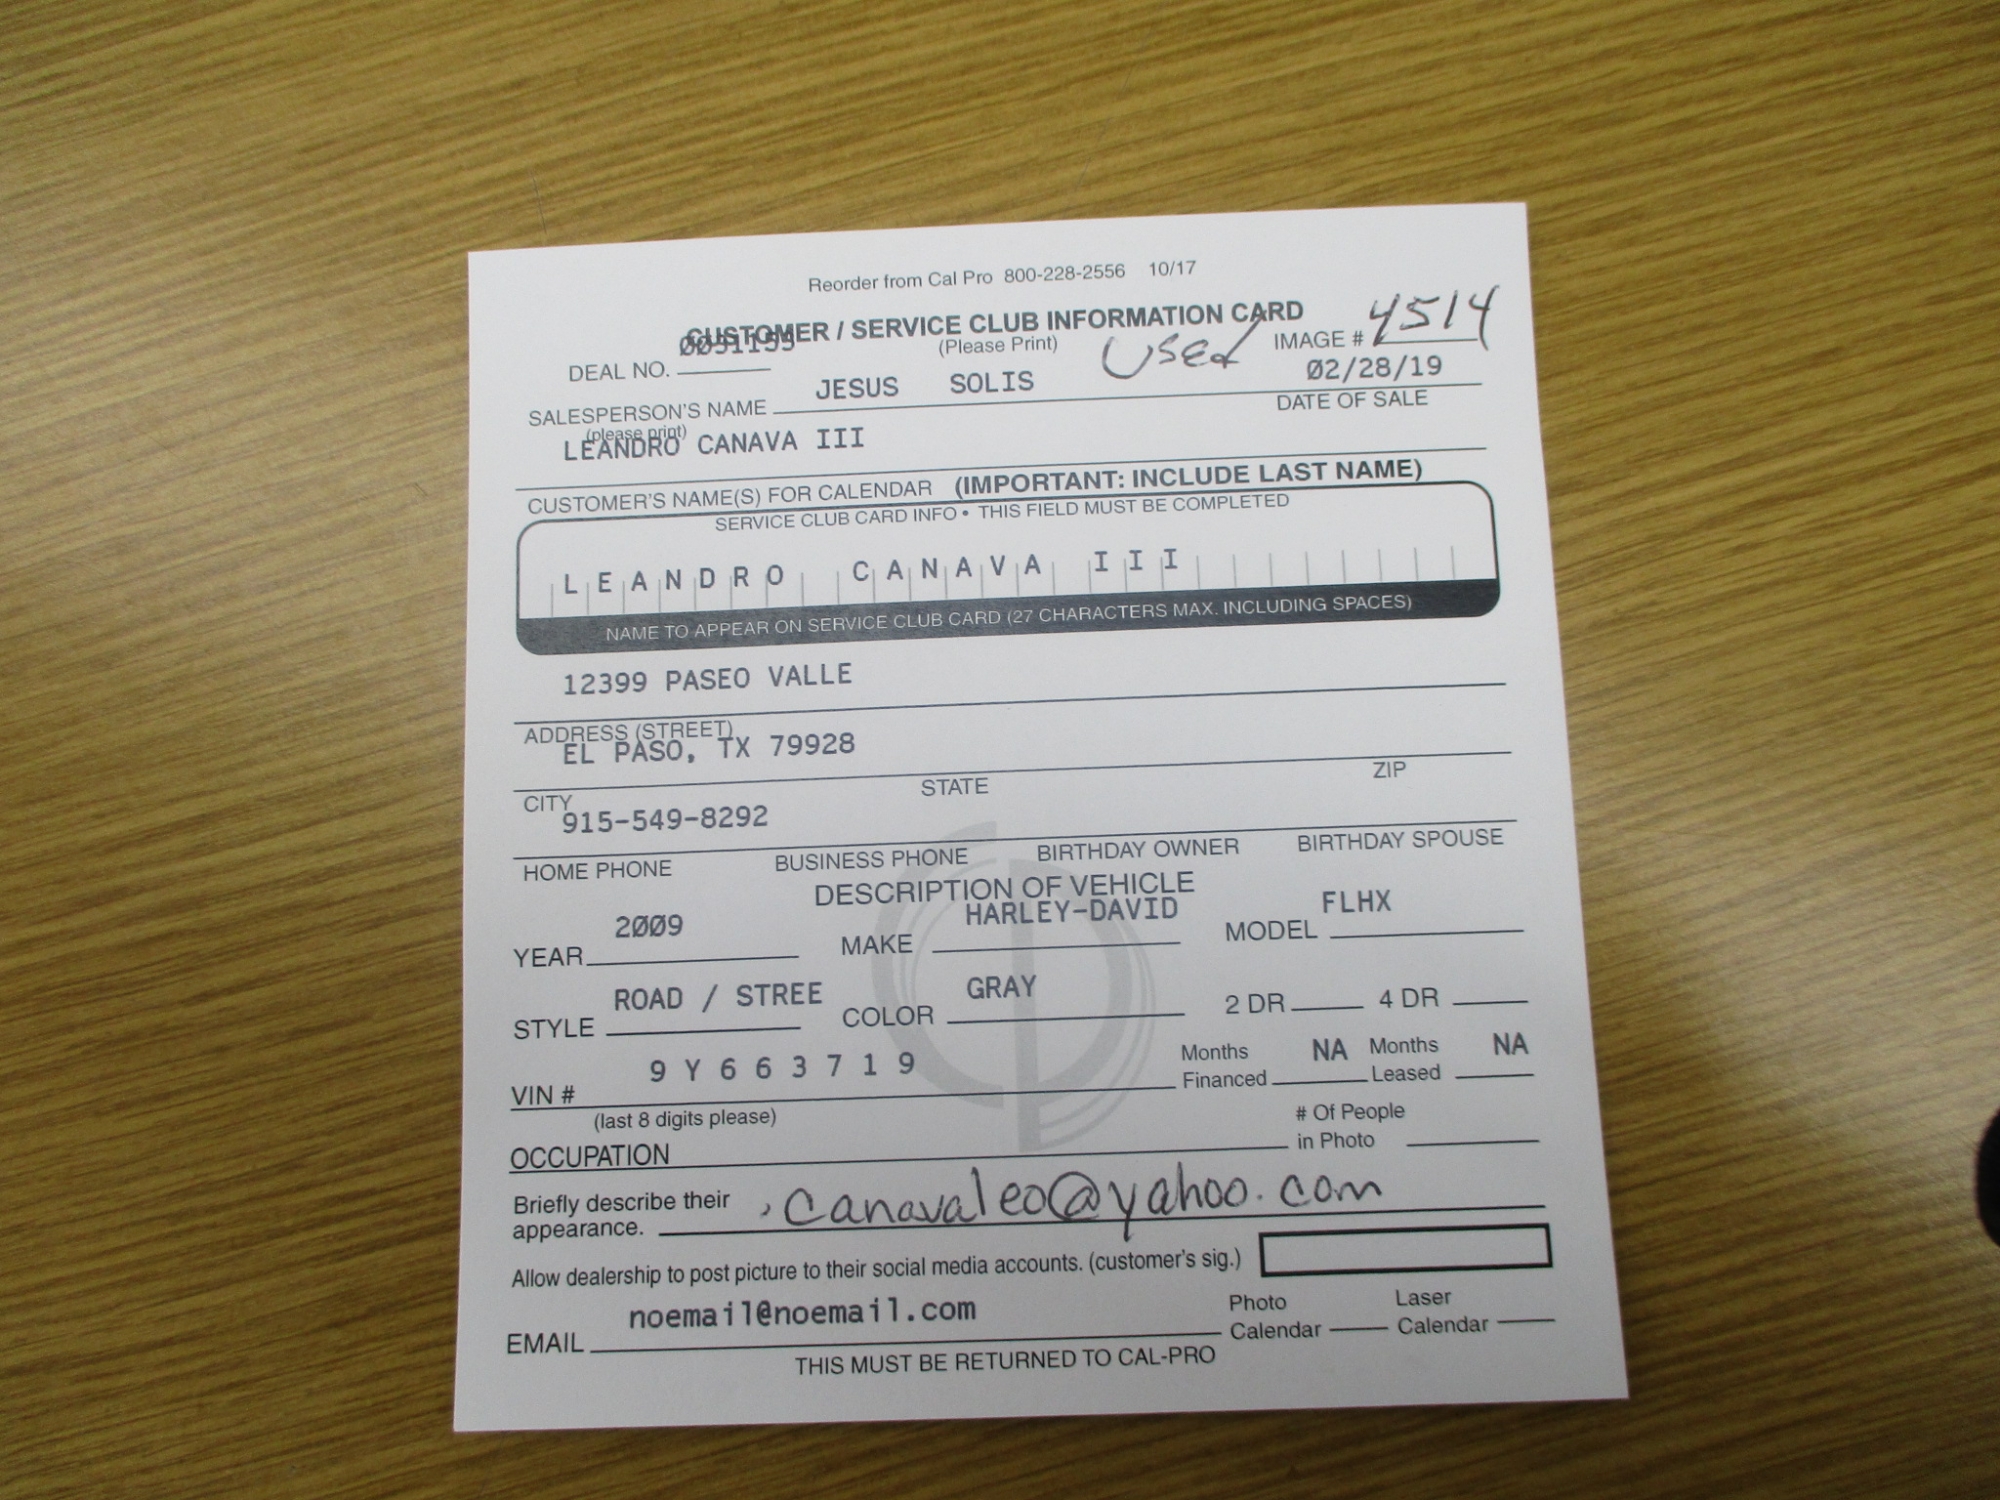 Reorder from Cal Pro 800-228-2556 10/17
CUSTOMER / SERVICE CLUB INFORMATION CARD
(Please Print) Used IMAGE # 4514
DEAL NO.
JESUS SOLIS 02/28/19
SALESPERSON'S NAME DATE OF SALE
(please print)
LEANDRO CANAVA III
CUSTOMER'S NAME(S) FOR CALENDAR (IMPORTANT: INCLUDE LAST NAME)
SERVICE CLUB CARD INFO • THIS FIELD MUST BE COMPLETED
LEANDRO CANAVA III
NAME TO APPEAR ON SERVICE CLUB CARD (27 CHARACTERS MAX. INCLUDING SPACES)
12399 PASEO VALLE
ADDRESS (STREET)
EL PASO, TX 79928
CITY STATE ZIP
915-549-8292
HOME PHONE BUSINESS PHONE BIRTHDAY OWNER BIRTHDAY SPOUSE
DESCRIPTION OF VEHICLE
2009 HARLEY-DAVID FLHX
YEAR MAKE MODEL
ROAD / STREE GRAY
STYLE COLOR 2 DR 4 DR
9Y663719 Months NA Months NA
VIN # Financed Leased
(last 8 digits please) # Of People
OCCUPATION in Photo
Briefly describe their , canavaleo@yahoo.com
appearance.
Allow dealership to post picture to their social media accounts. (customer's sig.)
noemail@noemail.com Photo Laser
EMAIL Calendar Calendar
THIS MUST BE RETURNED TO CAL-PRO